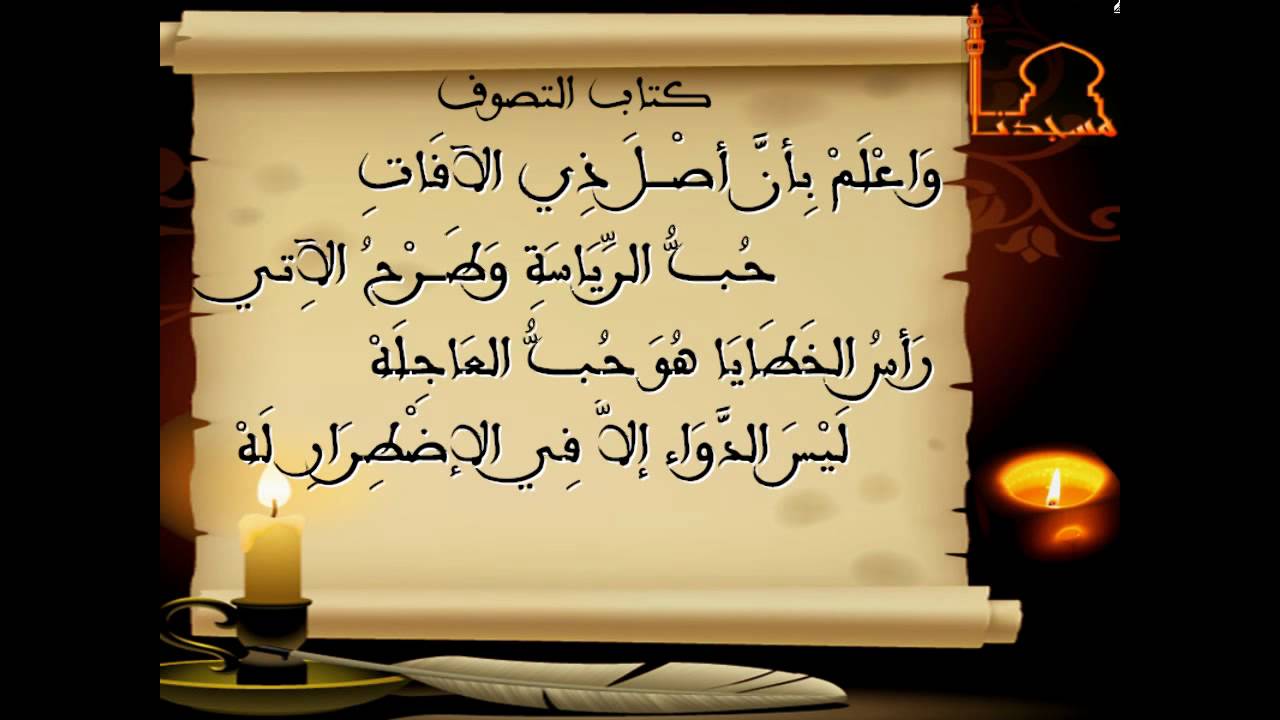 كتاب التصوف
مسجدنا
وَاعْلَمْ بِأنَّ أصْلَ ذِي الآفَاتِ
حُبُّ الرِّيَاسَةِ وَطَرْحُ الآتِي
رَأسُ الخَطَايَا هُوَ حُبُّ العَاجِلَهْ
لَيْسَ الدَّوَاء إلاَّ فِي الإضْطِرَارِ لَهْ